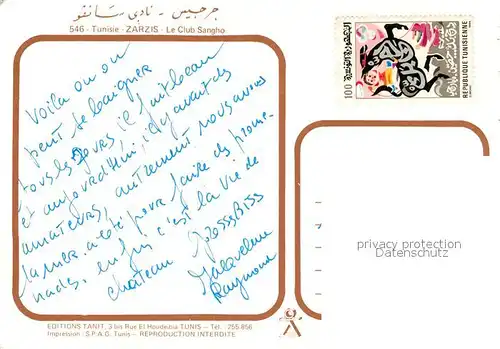 جرجيس - نادى سانغو
546 - Tunisie - ZARZIS - Le Club Sangho
Voila ou on
peut se baigner
tous les jours il fait beau
et aujourd'hui, il y avait des
amateurs, autrement nous avons
la mer. a été pour faire des prome-
nades. enfin c'est la vie de
château
Grosses Biss
Jacqueline
Raymond
EDITIONS TANIT, 3 bis Rue El Houdeibia TUNIS - Tél. 255.856
Impression : S.P.A.G. Tunis - REPRODUCTION INTERDITE
100
REPUBLIQUE TUNISIENNE
privacy protection
Datenschutz